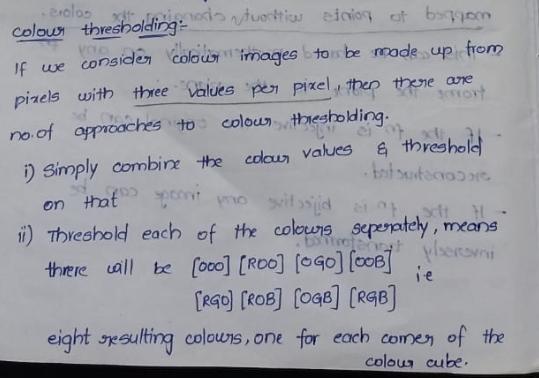 colour thresholding:-
If we consider colour images to be made up from
pixels with three values per pixel, then there are
no.of approaches to colour thresholding.
i) Simply combine the colour values & threshold
on that
ii) Threshold each of the colours seperately, means
threre will be [000] [R00] [0G0] [00B]
[RG0] [R0B] [0GB] [RGB] i.e
eight resulting colours, one for each corner of the
colour cube.